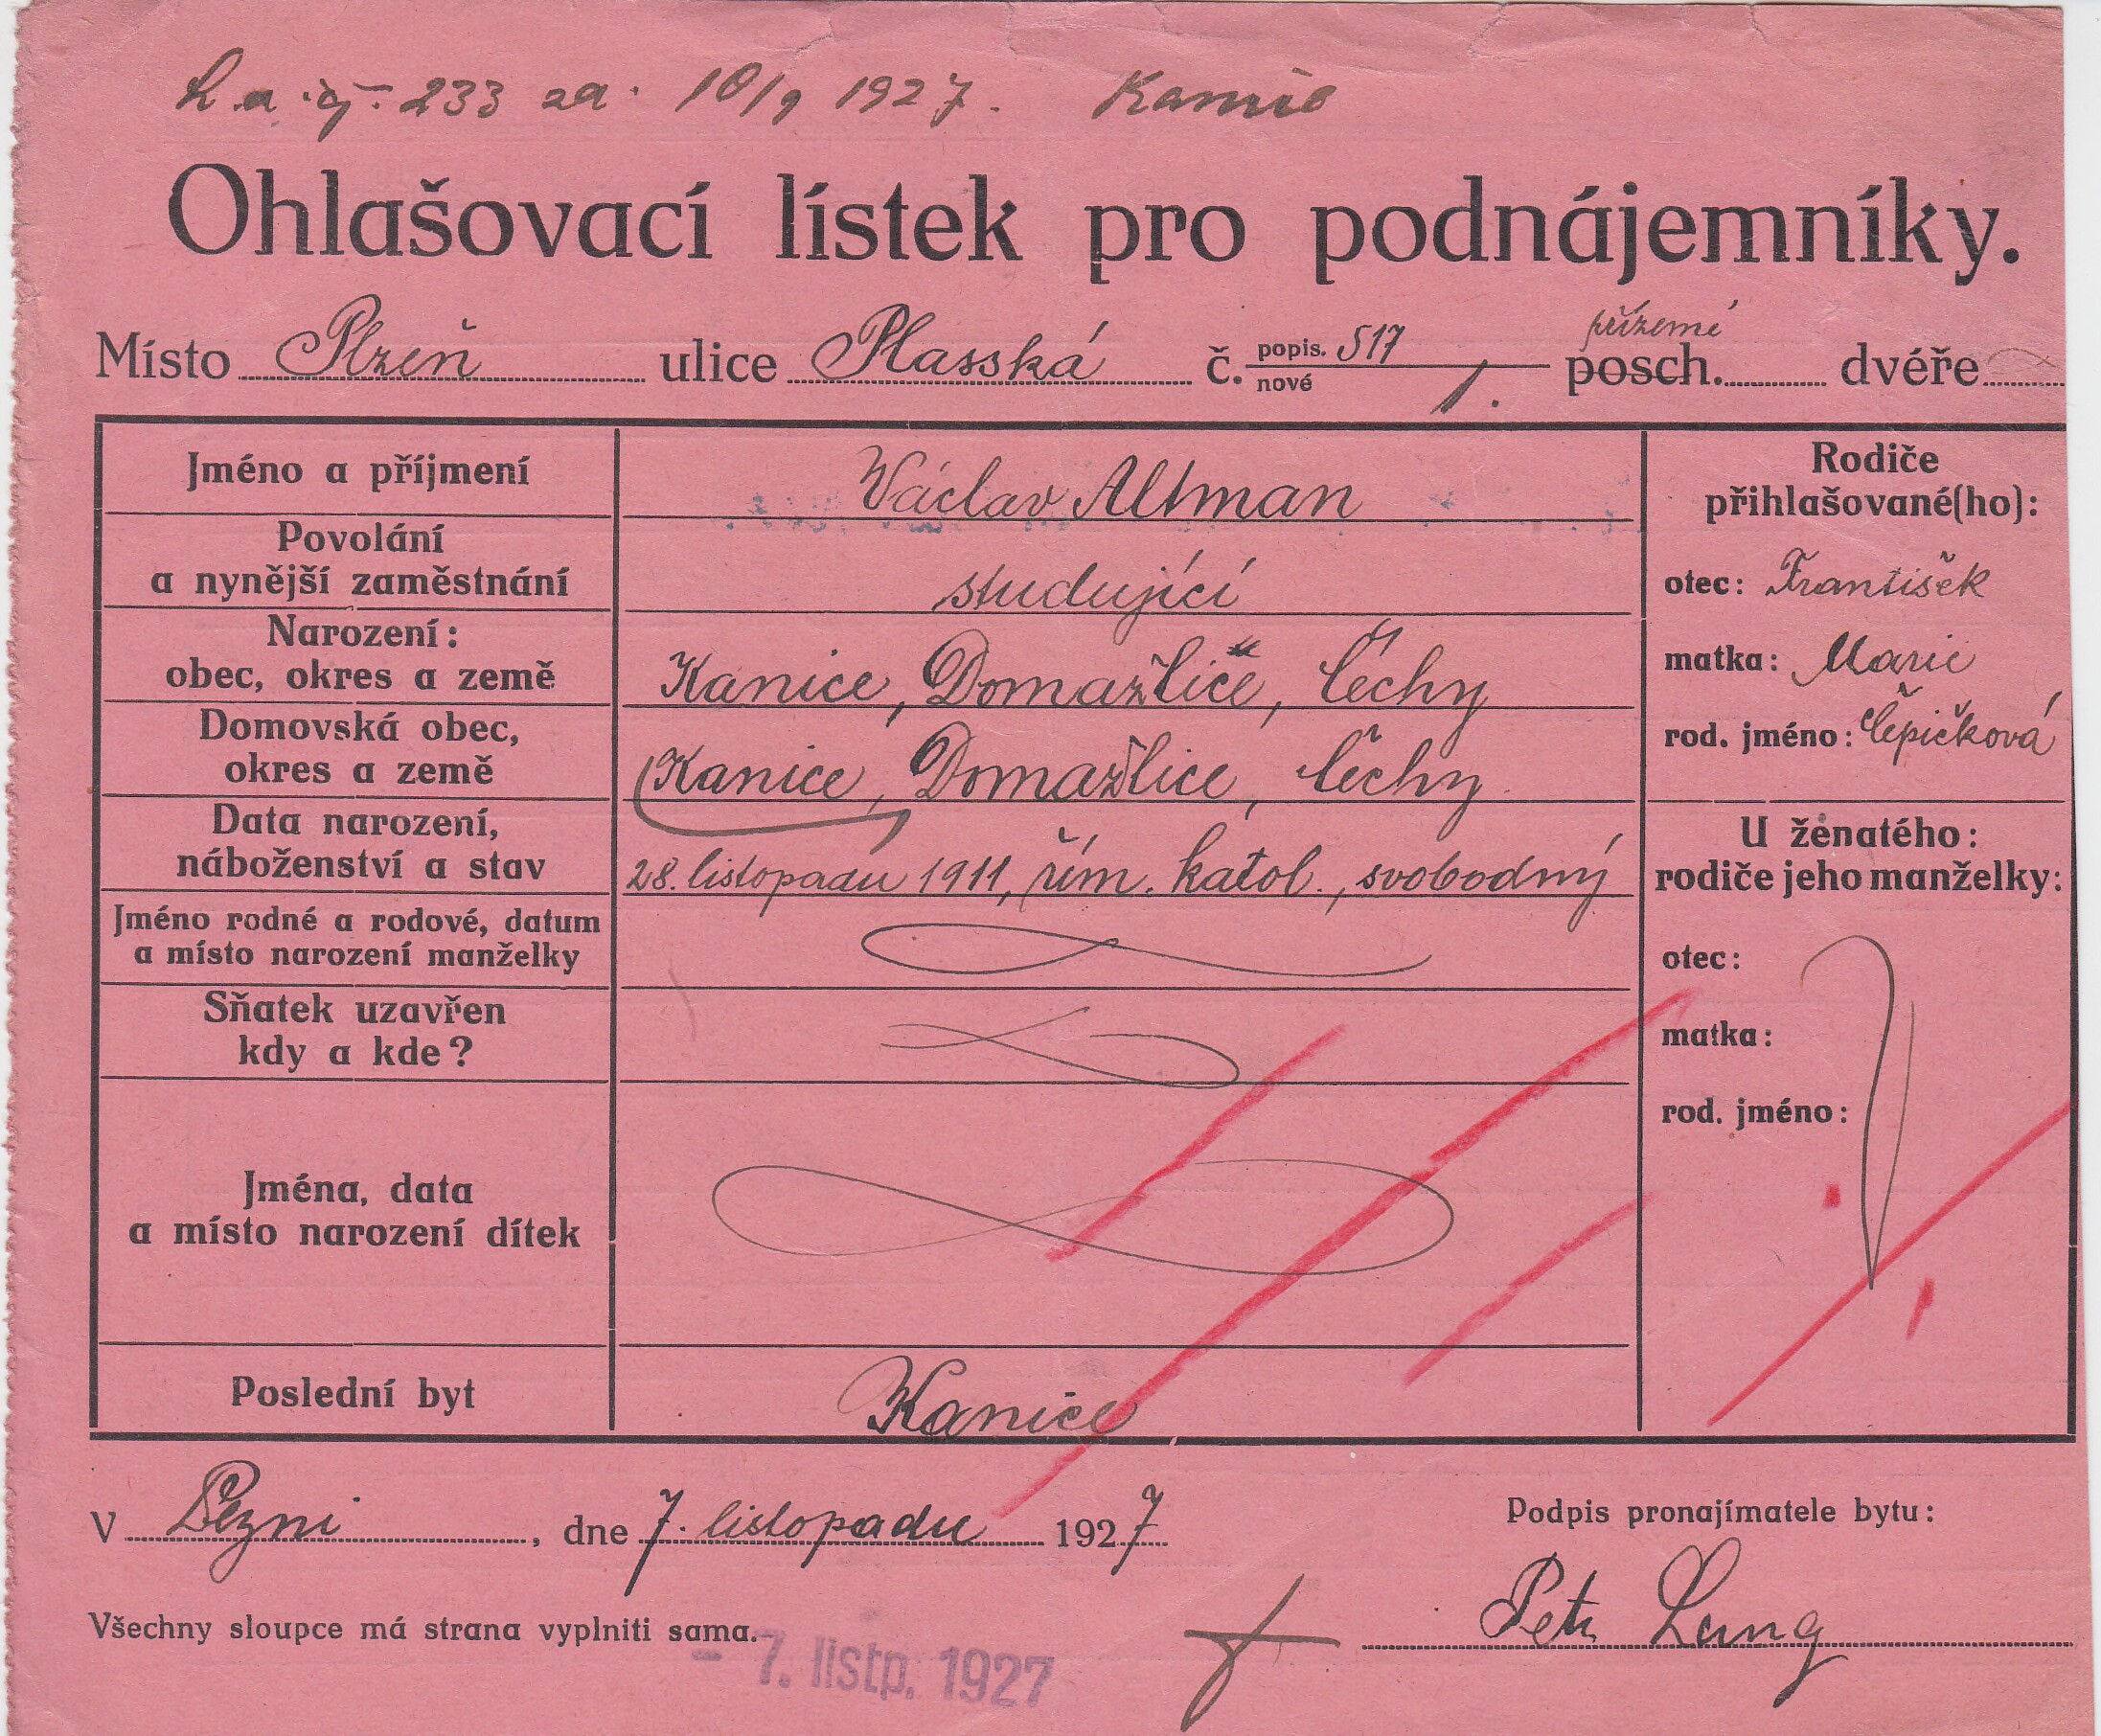 233 za 18/9 1927. Kanic
Ohlašovací lístek pro podnájemníky.
Místo Plzeň ulice Plasská č. popis. 517 nové 1. přízemí posch. dvéře
Jméno a příjmení Václav Altman
Povolání
a nynější zaměstnání studující
Narození:
obec, okres a země Kanice, Domažlice, Čechy
Domovská obec,
okres a země Kanice, Domažlice, Čechy
Data narození,
náboženství a stav 28. listopadu 1911, řím. katol., svobodný
Jméno rodné a rodové, datum
a místo narození manželky
Sňatek uzavřen
kdy a kde?
Jména, data
a místo narození dítek
Poslední byt Kanice
Rodiče
přihlašované(ho):
otec: František
matka: Marie
rod. jméno: Čepičková
U ženatého:
rodiče jeho manželky:
otec:
matka:
rod. jméno:
V Plzni, dne 7. listopadu 1927
Podpis pronajímatele bytu:
Petr Lang
Všechny sloupce má strana vyplniti sama.
- 7. listp. 1927